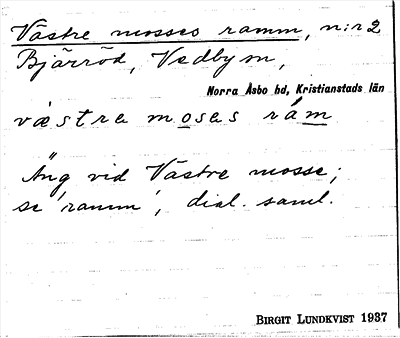 Västre mosses ramm, n:r 2
Bjärröd, Vedby sn,
Norra Åsbo hd, Kristianstads län
væstre moses rám
Äng vid Västre mosse;
se 'ramm', dial. saml.
BIRGIT LUNDKVIST 1937